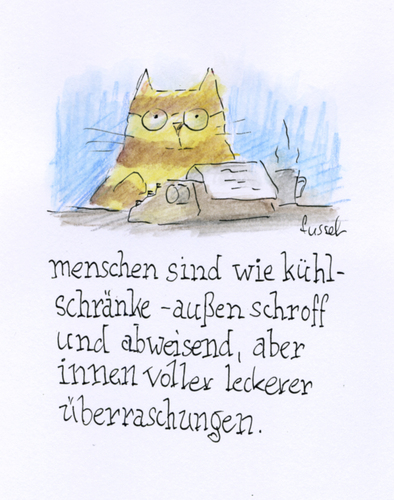 fussel
menschen sind wie kühl-
schränke - außen schroff
und abweisend, aber
innen voller leckerer
überraschungen.